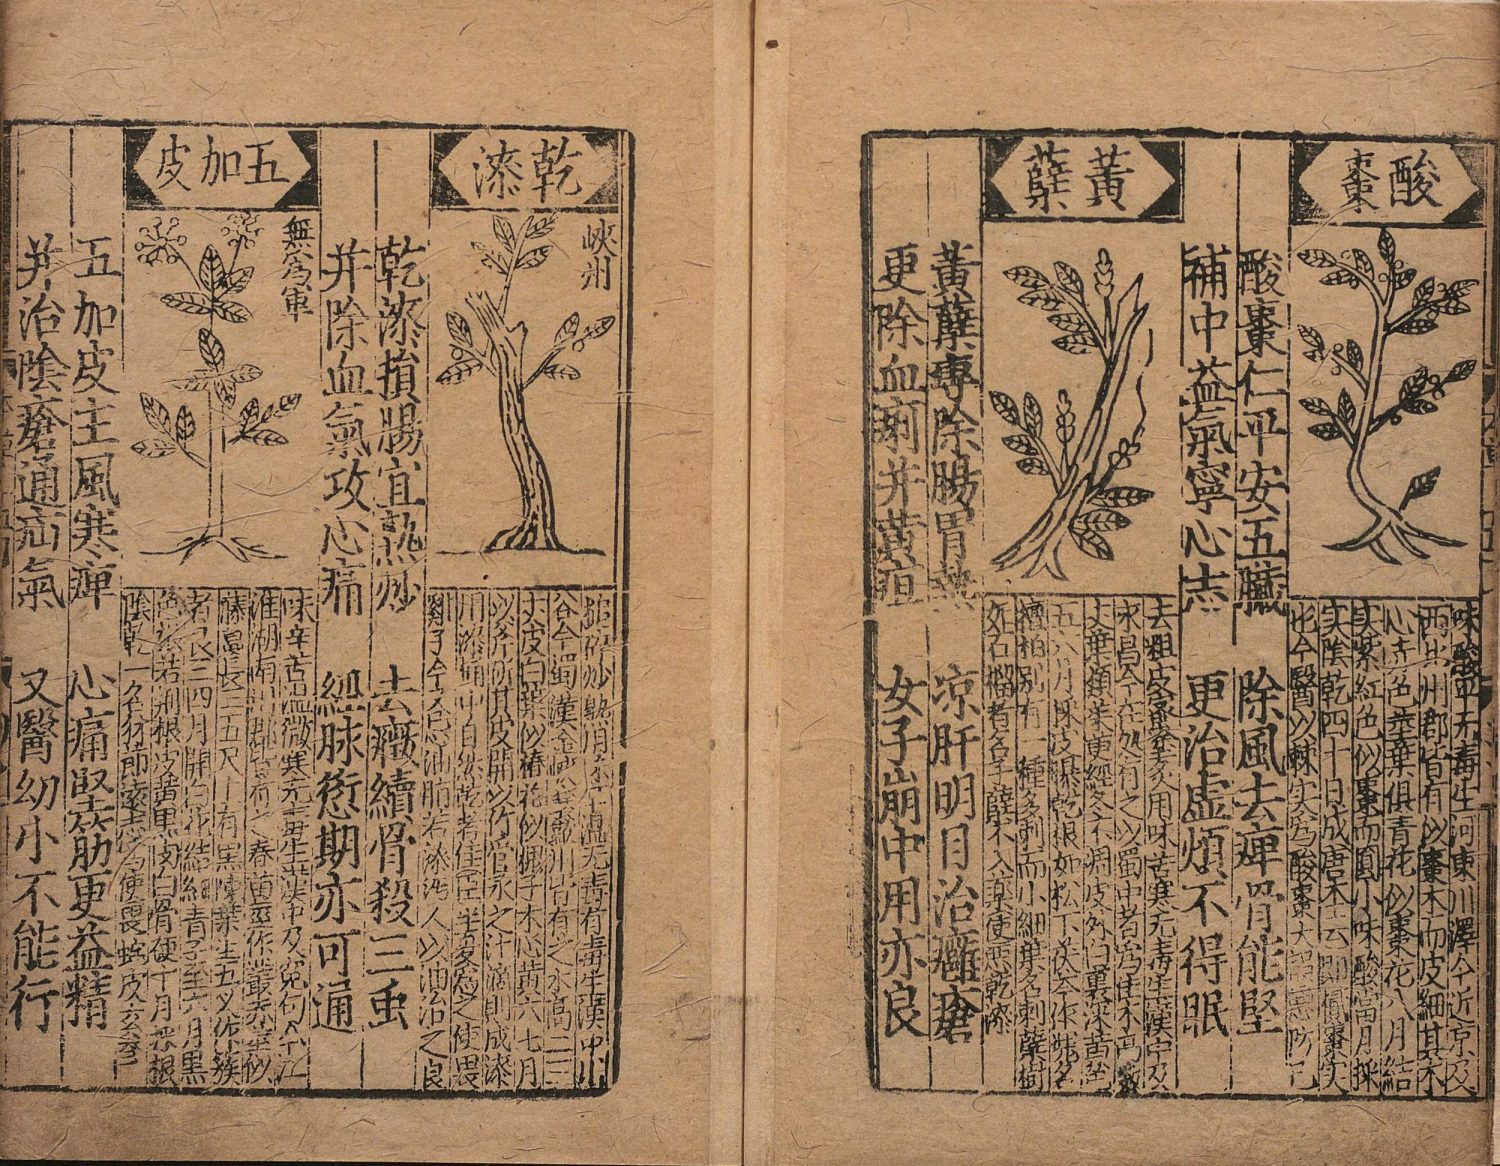 酸棗
味酸平无毒生河東川澤今近京及
西北州郡皆有以棗木而皮細其木
心赤色莖葉俱青花似棗花八月結
实紫紅色似棗而圓小味酸當月採
实陰乾四十日成唐本云即僨棗实
也今醫以棘实爲酸棗大誤惡防己
酸棗仁平安五臟 除風去痺骨能堅
補中益氣寧心志 更治虛煩不得眠
黃蘗
去粗皮蜜炙用味苦寒无毒生漢中及
永昌今在処有之以蜀中者爲佳木高数
丈葉類茱萸經冬不凋皮外白裏深黃色
五六月採皮曝乾根如松下茯苓作結名
檀桓別有一種多刺而小細葉名刺蘗樹
如石榴者名子蘗不入藥使惡乾漆
黃蘗專除腸胃熱 凉肝明目治癰瘡
更除血痢并黃疸 女子崩中用亦良
乾漆
峽州
搥碎炒熟用味辛温无毒有毒生漢中川
谷今蜀漢金峽襄歙州皆有之木高二三
丈皮白葉似椿花似槐子木心黃六七月
以斧斫其皮開以竹管承之汁滴則成漆
用漆桶中自然乾者佳臣半夏爲之使畏
雞子今又忌油脂若漆沾人以油治之良
乾漆損腸宜熱炒 去癥續骨殺三虫
并除血氣攻心痛 經脉愆期亦可通
五加皮
無爲軍
味辛苦温微寒无毒生漢中及冤句今江
淮湖南州郡皆有之春苗莖作叢赤莖似
藤葛長三五尺上有黑刺葉生五叉作簇
者良三四月開白花結細青子至六月黑
色根若荊根皮黃黑肉白骨硬十月採根
陰乾一名豺節遠志爲使畏蛇皮玄參
五加皮主風寒痺 心痛堅筋更益精
并治陰瘡通疝氣 又醫幼小不能行